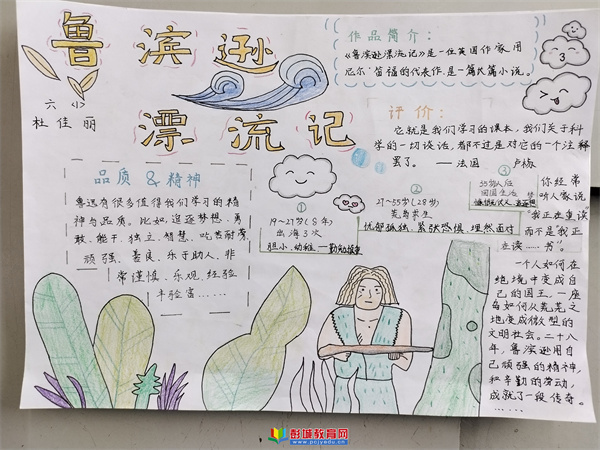 鲁滨逊
漂流记
六〈1〉
杜佳丽
作品简介:
《鲁滨逊漂流记》是一位英国作家丹
尼尔·笛福的代表作,是一篇长篇小说。
评价:
它就是我们学习的课本,我们关于科
学的一切谈话,都不过是对它的一个注释
罢了。 —法国 卢梭
品质 & 精神
鲁迅有很多值得我们学习的精
神与品质。比如,追逐梦想、勇
敢、能干、独立、智慧、吃苦耐劳、
顽强、善良、乐于助人、非
常谨慎、乐观、经验
丰验富……
①
19~27岁(8年)
出海3次
胆小、幼稚—勤勉
②
27~55岁(28岁)
荒岛求生
忧郁孤独 紧张恐惧 坦然面对
③
55岁以后
回国生活
你经常
听人家说,
“我正在重读
而不是我正
在读……书”。
一个人如何在
绝境中变成自
己的国王,一座
岛如何从荒芜之
地变成微型的
文明社会。二十八
年,鲁滨逊用自
己顽强的精神,
和辛勤的劳动,
成就了一段传奇。
……
彭城教育网
www.pcjyedu.cn